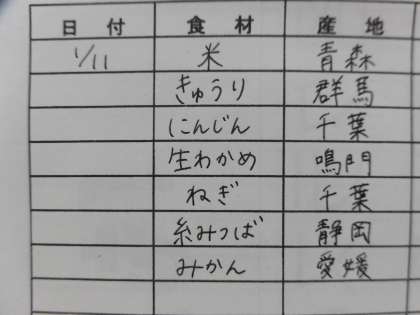 日付 食材 産地
1/11 米 青森
きゅうり 群馬
にんじん 千葉
生わかめ 鳴門
ねぎ 千葉
糸みつば 静岡
みかん 愛媛